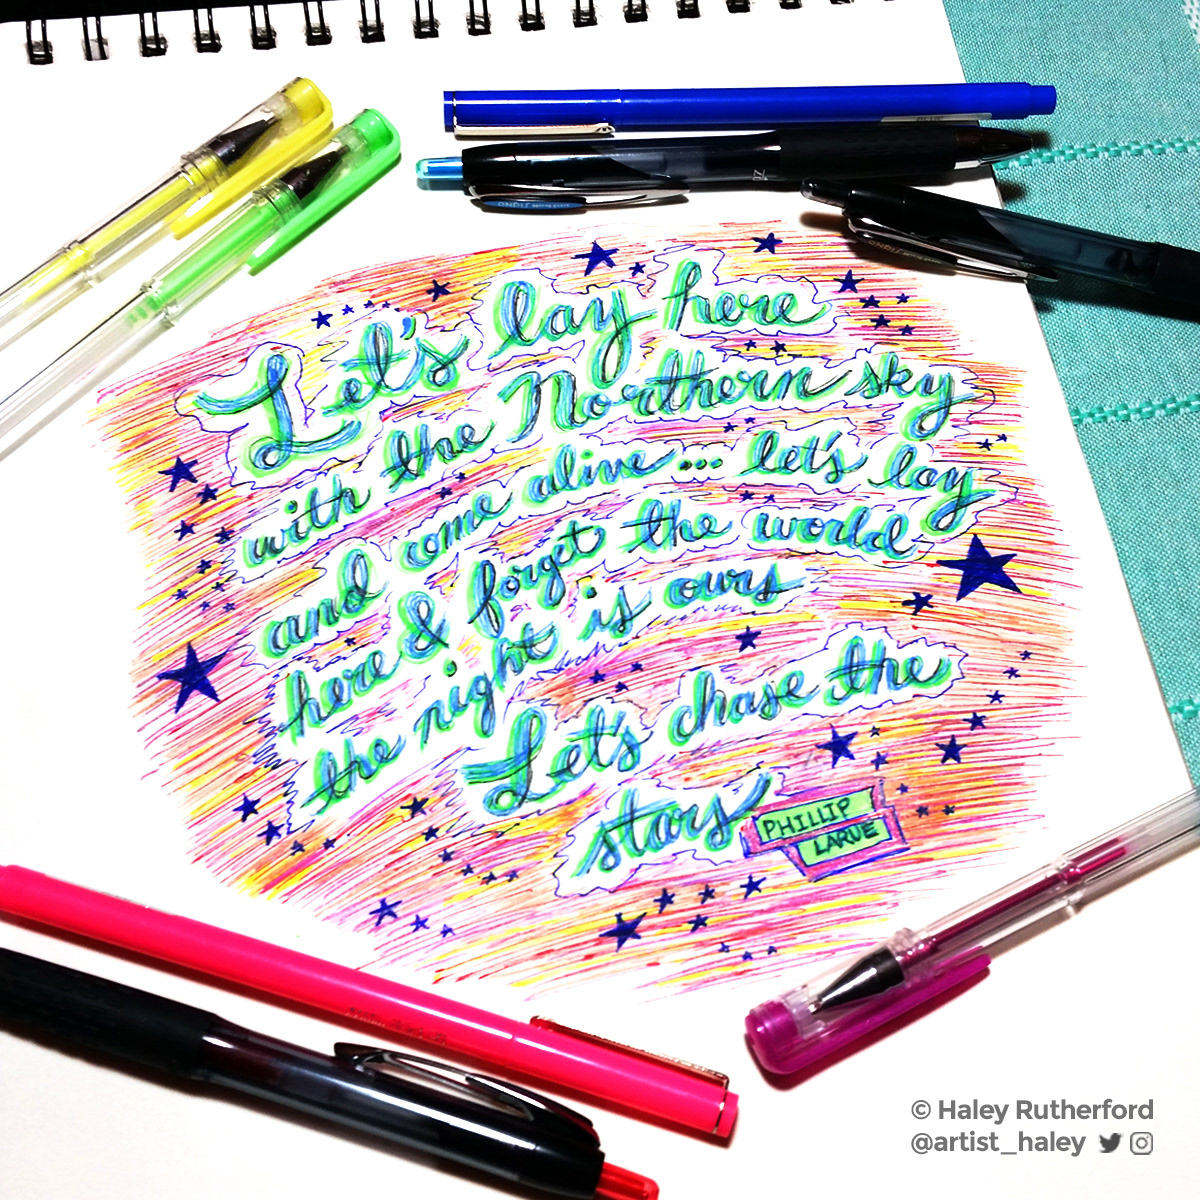 Let's lay here
with the Northern sky
and come alive... let's lay
here & forget the world
the night is ours
Let's chase the
stars
PHILLIP
LARUE
© Haley Rutherford
@artist_haley